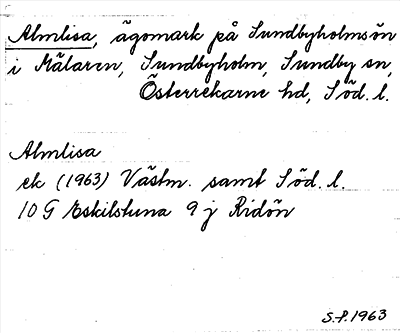 Almlisa, ägomark på Sundbyholmsön
i Mälaren, Sundbyholm, Sundby sn,
Österrekarne hd, Söd. l.
Almlisa
ek (1963) Västm. samt Söd. l.
10 G Eskilstuna 9 j Ridön
S.P. 1963